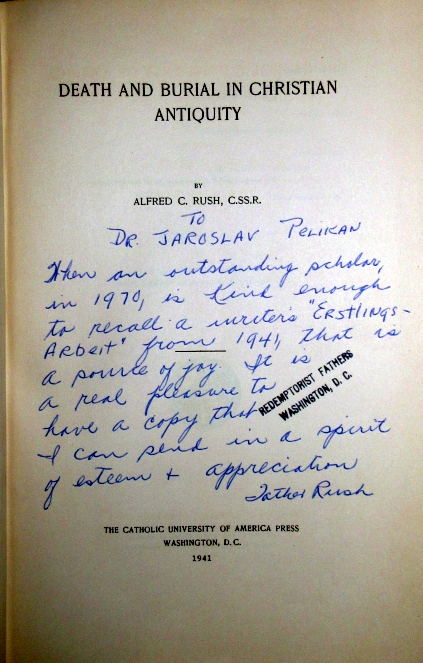 DEATH AND BURIAL IN CHRISTIAN
ANTIQUITY
BY
ALFRED C. RUSH, C.SS.R.
TO
DR. JAROSLAV PELIKAN
When an outstanding scholar,
in 1970, is kind enough
to recall a writer's "ERSTLINGS-
ARBEIT" from 1941, that is
a source of joy. It is
a real pleasure to
have a copy that
REDEMPTORIST FATHERS
WASHINGTON, D. C.
I can send in a spirit
of esteem + appreciation
Father Rush
THE CATHOLIC UNIVERSITY OF AMERICA PRESS
WASHINGTON, D.C.
1941